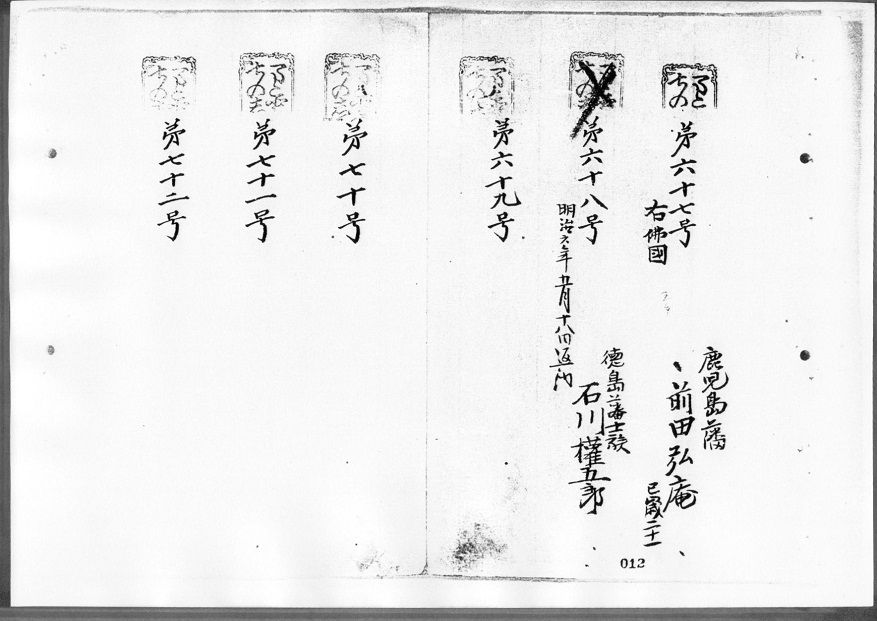 第六十七号
右佛國
鹿児島藩
前田弘庵
巳歳二十一
第六十八号
明治六年五月十八日返納
徳島藩士族
石川權五郎
第六十九号
第七十号
第七十一号
第七十二号
012